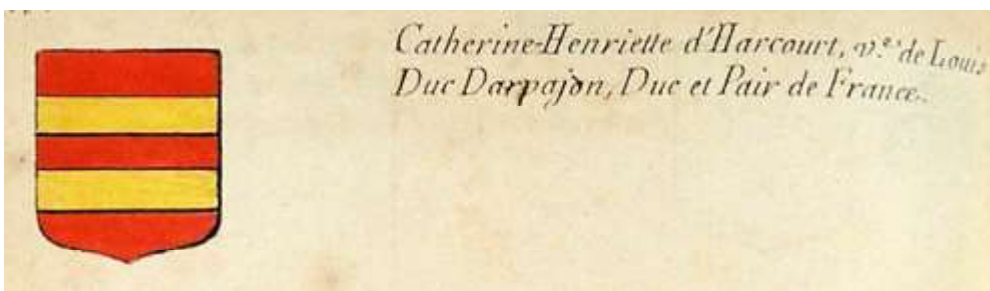 Catherine-Henriette d'Harcourt, v.e de Louis
Duc Darpajon, Duc et Pair de France.